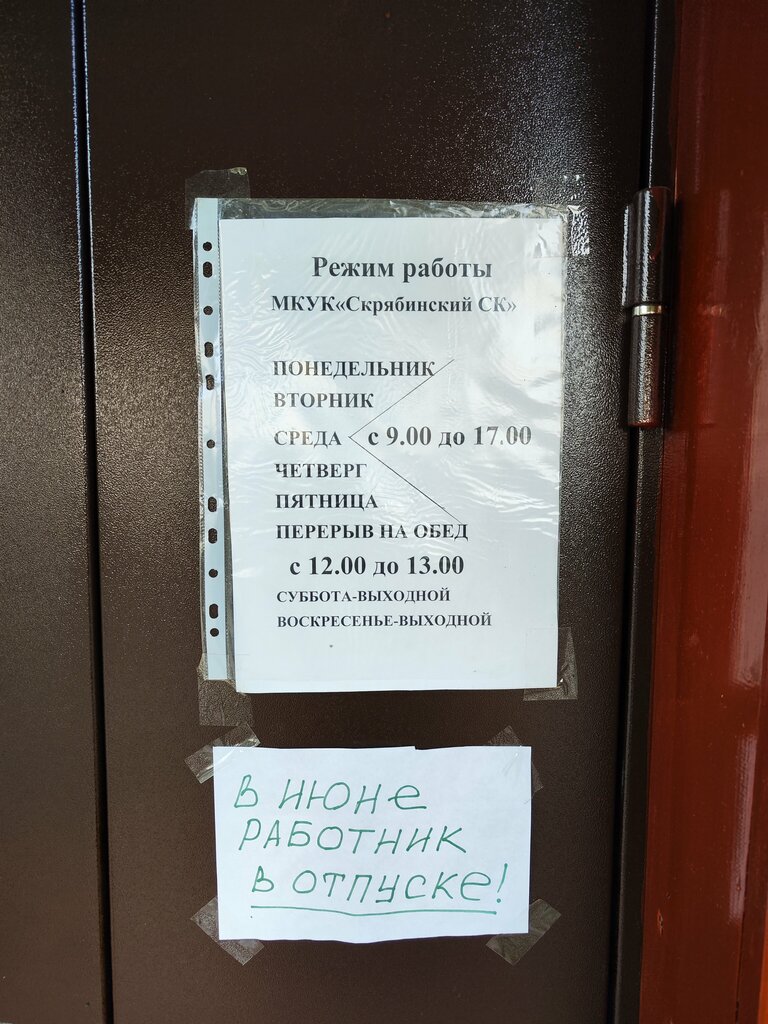 Режим работы
МКУК«Скрябинский СК»
ПОНЕДЕЛЬНИК
ВТОРНИК
СРЕДА с 9.00 до 17.00
ЧЕТВЕРГ
ПЯТНИЦА
ПЕРЕРЫВ НА ОБЕД
с 12.00 до 13.00
СУББОТА-ВЫХОДНОЙ
ВОСКРЕСЕНЬЕ-ВЫХОДНОЙ
В ИЮНЕ
РАБОТНИК
В ОТПУСКЕ!